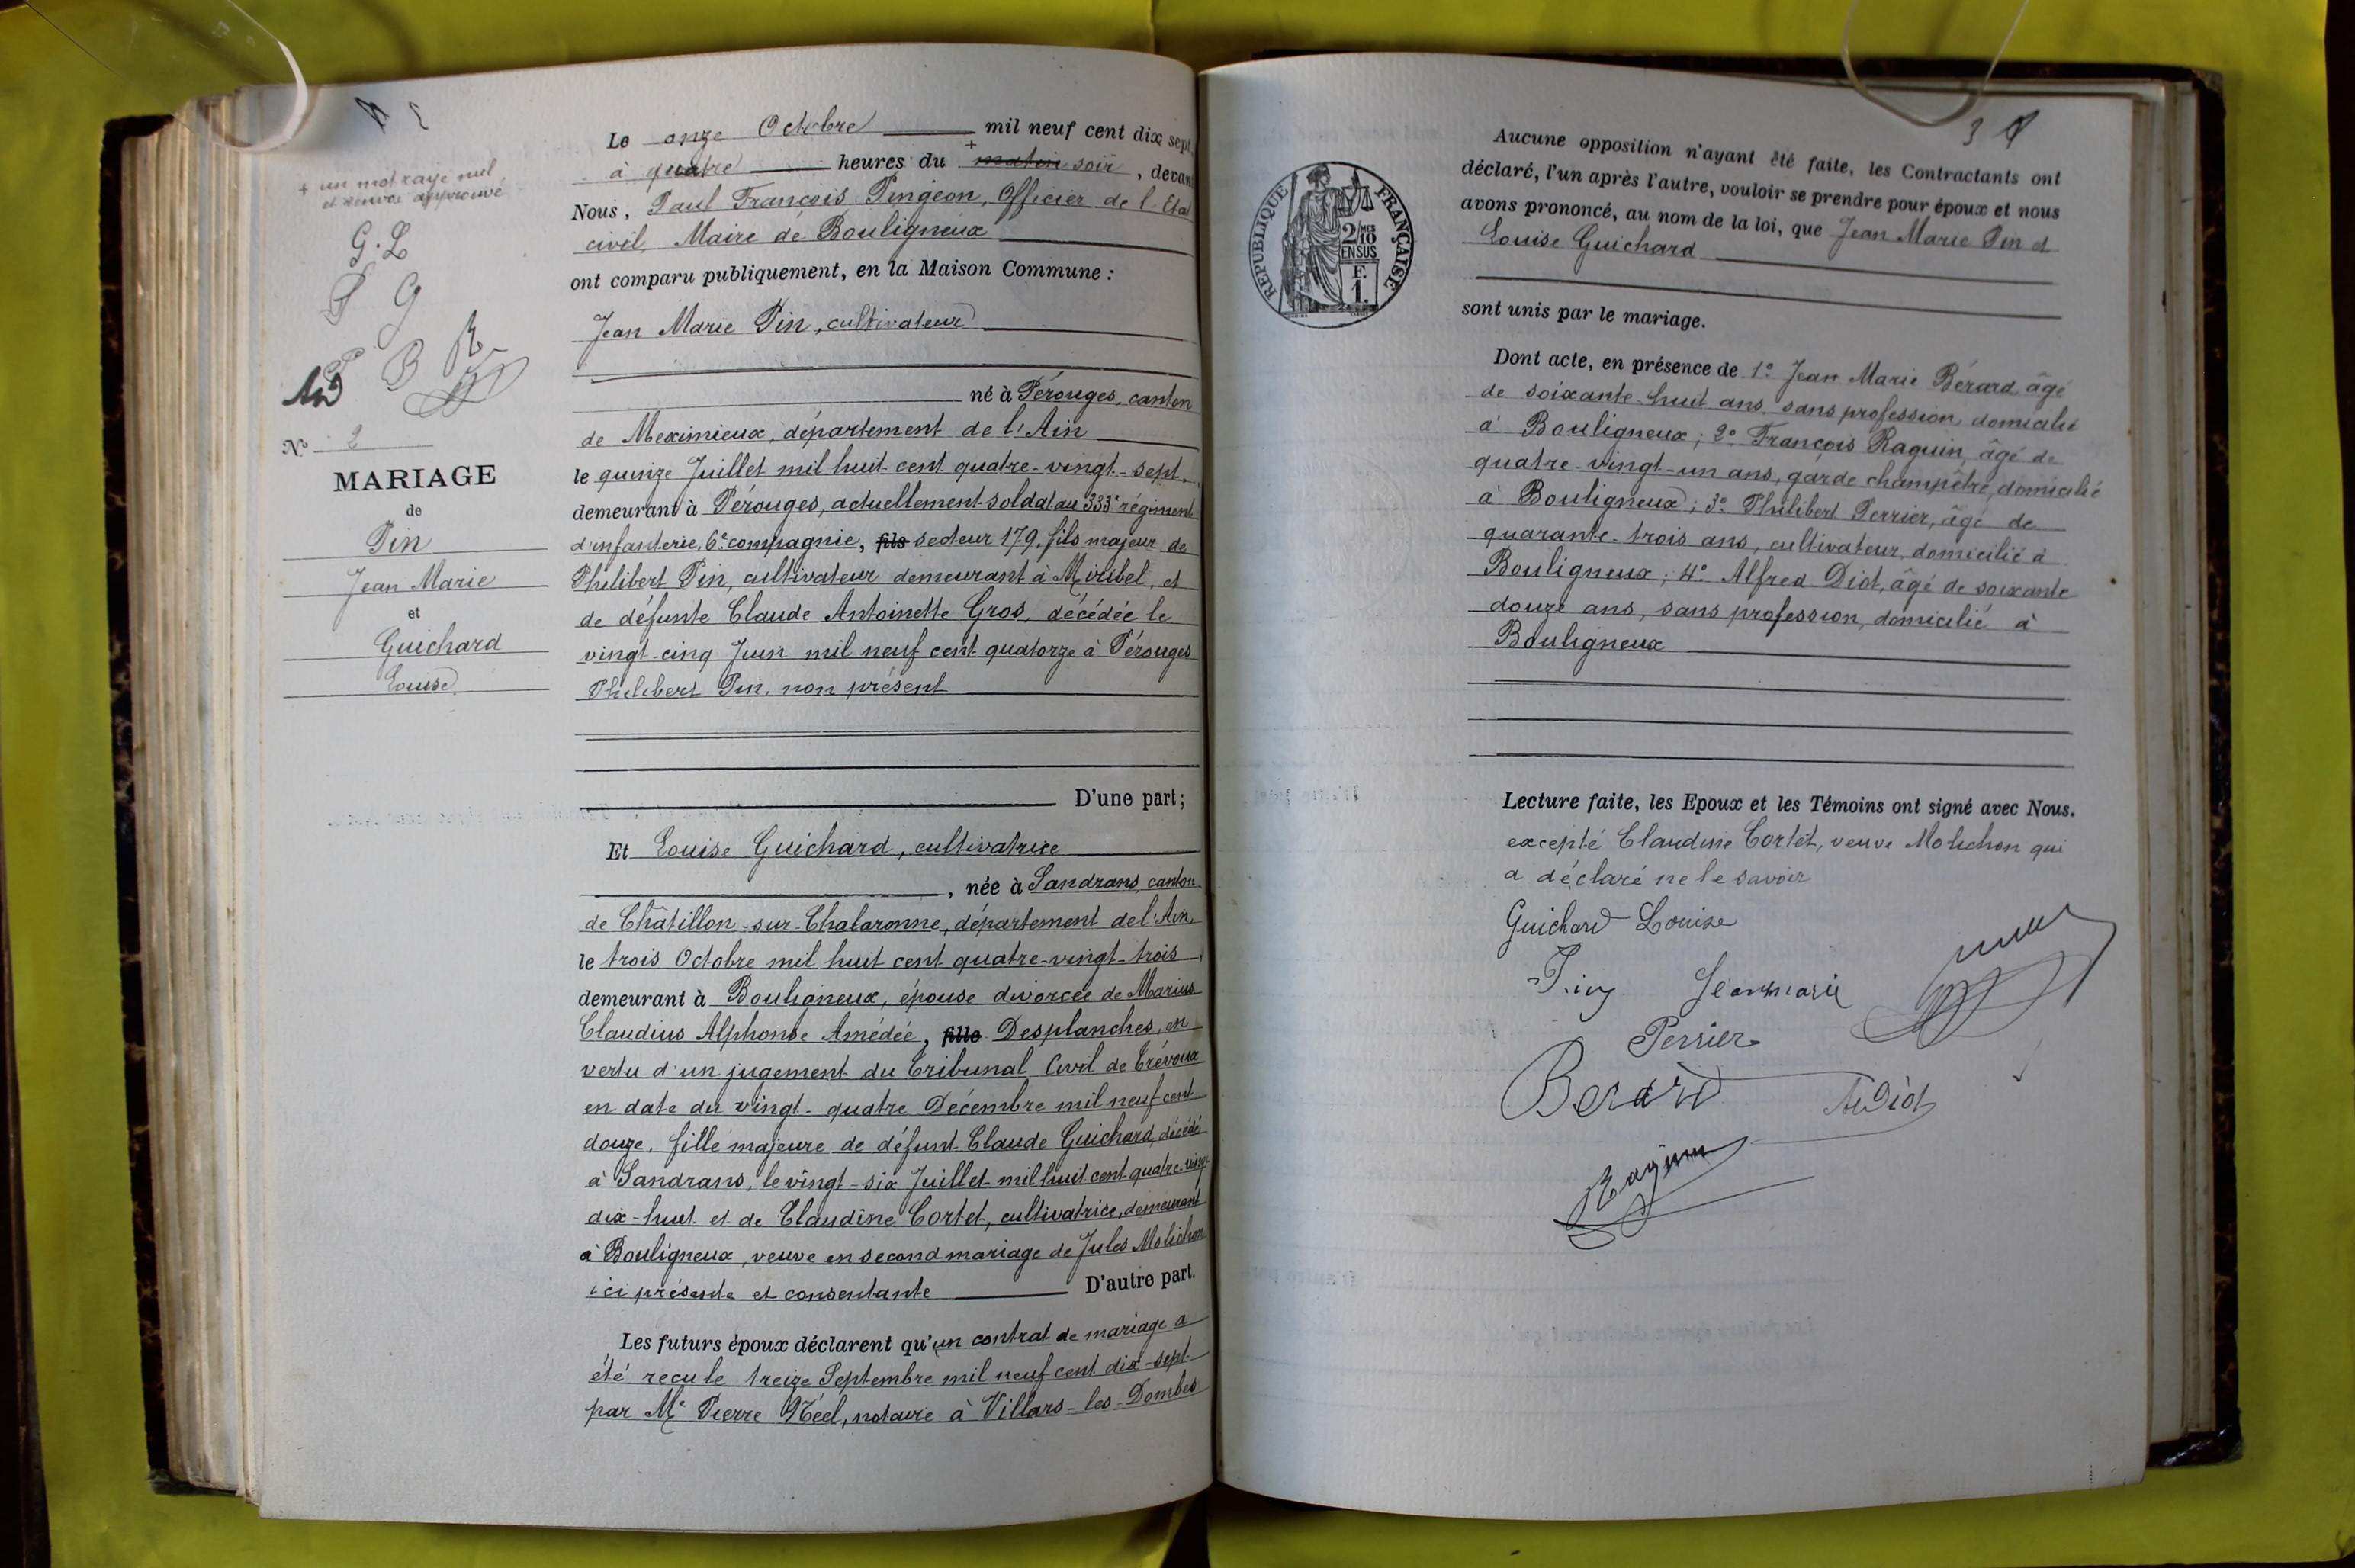 + un mot rayé nul
et renvoi approuvé
G. L
P G
P B R
AD
No 2
MARIAGE
de
Pin
Jean Marie
et
Guichard
Louise
Le onze Octobre mil neuf cent dix sept,
à quatre heures du + matin soir, devant
Nous, Paul François Pingeon, Officier de l'Etat
civil, Maire de Bouligneux
ont comparu publiquement, en la Maison Commune :
Jean Marie Pin, cultivateur
né à Pérouges, canton
de Meximieux, département de l'Ain
le quinze Juillet mil huit cent quatre-vingt-sept,
demeurant à Pérouges, actuellement soldat au 333e régiment
d'infanterie, 6e compagnie, fils secteur 179, fils majeur de
Philibert Pin, cultivateur demeurant à Miribel, et
de défunte Claude Antoinette Gros, décédée le
vingt-cinq Juin mil neuf cent quatorze à Pérouges
Philibert Pin, non présent
D'une part;
Et Louise Guichard, cultivatrice
, née à Sandrans, canton
de Châtillon-sur-Chalaronne, département de l'Ain,
le trois Octobre mil huit cent quatre-vingt-trois
demeurant à Bouligneux, épouse divorcée de Marius
Claudius Alphonse Amédée, fille Desplanches, en
vertu d'un jugement du Tribunal Civil de Trévoux
en date du vingt-quatre Décembre mil neuf cent
douze, fille majeure de défunt Claude Guichard, décédé
à Sandrans, le vingt-six Juillet mil huit cent quatre-vingt
dix-huit et de Claudine Cortet, cultivatrice, demeurant
à Bouligneux, veuve en second mariage de Jules Molichon
ici présente et consentante D'autre part.
Les futurs époux déclarent qu'un contrat de mariage a
été reçu le treize Septembre mil neuf cent dix-sept
par Me Pierre Néel, notaire à Villars-les-Dombes
3
RÉPUBLIQUE FRANÇAISE
2/10 MES
EN SUS
F.
1.
Aucune opposition n'ayant été faite, les Contractants ont
déclaré, l'un après l'autre, vouloir se prendre pour époux et nous
avons prononcé, au nom de la loi, que Jean Marie Pin et
Louise Guichard
sont unis par le mariage.
Dont acte, en présence de 1° Jean Marie Bérard, âgé
de soixante-huit ans, sans profession, domicilié
à Bouligneux ; 2° François Raguin, âgé de
quatre-vingt-un ans, garde champêtre, domicilié
à Bouligneux ; 3° Philibert Perrier, âgé de
quarante-trois ans, cultivateur, domicilié à
Bouligneux ; 4° Alfred Diot, âgé de soixante
douze ans, sans profession, domicilié à
Bouligneux
Lecture faite, les Epoux et les Témoins ont signé avec Nous.
excepté Claudine Cortet, veuve Molichon qui
a déclaré ne le savoir
Guichard Louise
Pin Jean marie
Perrier
Berard
A Diot
Raguin